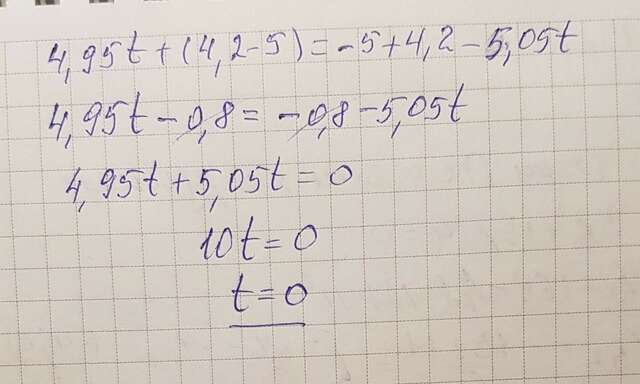 4,95t + (4,2 - 5) = -5 + 4,2 - 5,05t
4,95t - 0,8 = -0,8 - 5,05t
4,95t + 5,05t = 0
10t = 0
t = 0